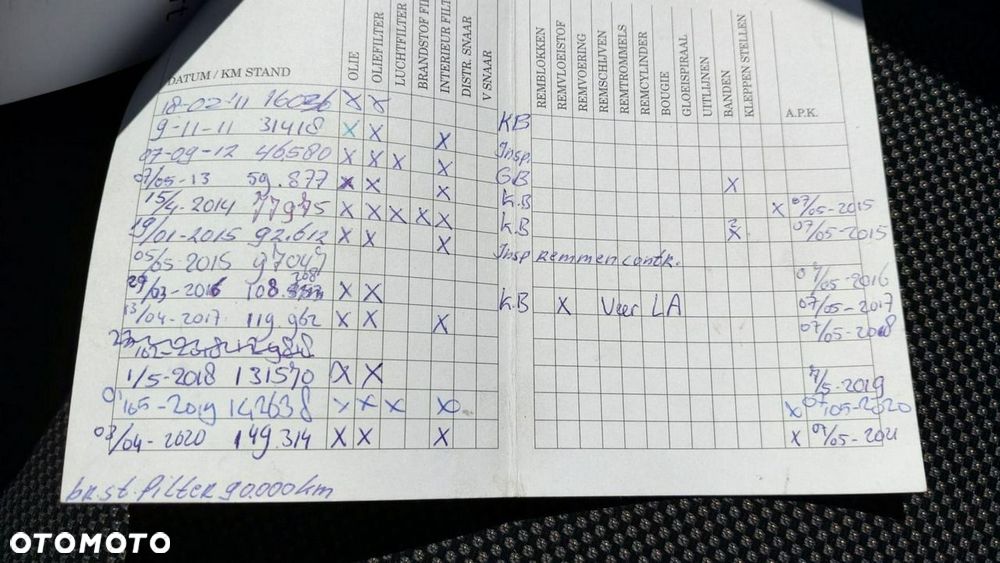 DATUM / KM STAND OLIE OLIEFILTER LUCHTFILTER BRANDSTOF FIL INTERIEUR FILT DISTR. SNAAR V SNAAR REMBLOKKEN REMVLOEISTOF REMVOERING REMSCHIJVEN REMTROMMELS REMCYLINDER BOUGIE GLOEISPIRAAL UITLIJNEN BANDEN KLEPPEN STELLEN A.P.K.
18-02-'11 16026 X X
9-11-11 31418 X X X KB
07-09-12 46580 X X X X Insp.
07/05-13 59.877 X X X GB X
15/4-2014 77975 X X X X X K.B X 07/05-2015
19/01-2015 92.612 X X X K.B 2 X 07/05-2015
05/05-2015 97049 Insp remmencontr.
29/03-2016 108. 208 X X 07/05-2016
13/04-2017 119.962 X X X K.B X Veer LA 07/05-2017
07/05-2018
1/5-2018 131570 X X 7/5-2019
01/05-2019 142638 X X X X X 07/05-2020
03/04-2020 149.314 X X X X 07/05-2021
br.st.filter 90.000km
OTOMOTO